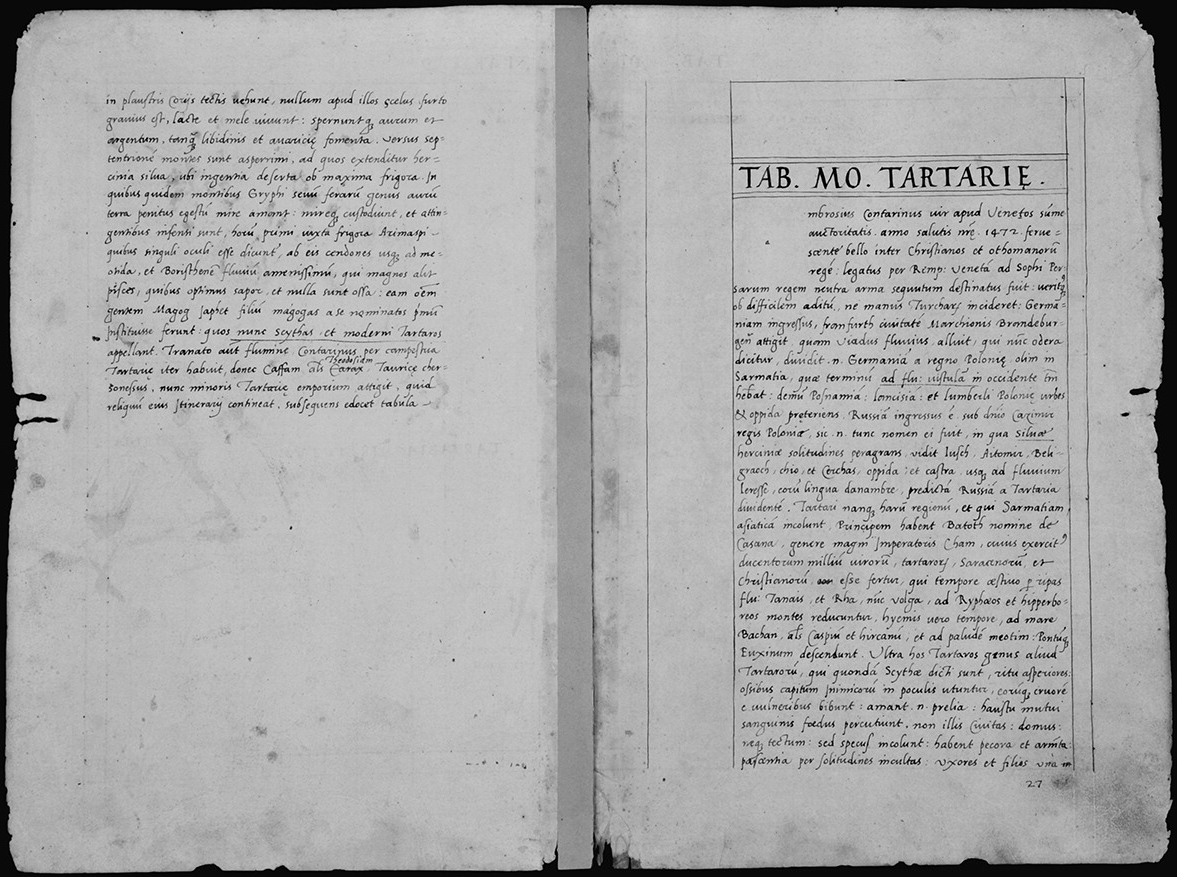 in plaustris Corijs tectis uehunt, nullum apud illos scelus furto
grauius est, lacte et mele uiuunt: spernuntq, aurum et
argentum, tanq, libidinis et auaricię fomenta. versus sep=
tentrionē montes sunt asperrimi, ad quos extenditur her=
cinia silua, ubi ingentia deserta ob maxima frigora. In
quibus quidem montibus Gryphi seuū ferarū genus aurū
terra penitus egestū mire amant: mireq, custodiunt, et attin=
gentibus infensi sunt, horū primi iuxta frigora Arimaspi-
quibus singuli oculi esse dicunt, ab eis cendones usq, ad me-
otida, et Boristhenē fluuiū amenissimū, qui magnos alit
pisces, quibus optimus sapor, et nulla sunt ossa: eam oēm
gentem Magog Japhet filiū magogas a se nominatos pmū
Instituisse ferunt: quos nunc Scythas, et moderni Tartaros
appellant. Tranato aūt flumine Contarinus per campestria
Theodosiam
Tartarię iter habuit, donec Caffam als Carax, Tauricę cher-
sonessus, nunc minoris Tartarię emporium attigit, quid
reliquū eius Itinerarij contineat, subsequens edocet tabula -
TAB. MO. TARTARIĘ.
mbrosius Contarinus uir apud Venetos sūme
auctoritatis. anno salutis nrę. 1472. ferue=
scente bello inter Christianos et othomanorū
regē: legatus per Remp: Venetā ad Sophi Per
sarum regem neutra arma sequutum destinatus fuit: ueritq,
ob difficilēm aditū, ne manus Turchars incideret: Germa=
niam ingressus, francfurth ciuitatē Marchionis Brandebur-
gen attigit, quam Viadus fluuius alluit, qui nūc odera
dicitur, diuidit. n. Germaniā a regno Polonię, olim in
Sarmatia, quae terminū ad flu: uistula in occidente tm
hebat: demū Posnania: loncisia: et lumberli Polonię urbes
& oppida pręteriens. Russiā ingressus ē. sub dn̄io Cazimir
regis Poloniæ, sic. n. tunc nomen ei fuit, in qua Siluæ
herciniæ solitudines peragrans, vidit Iusch, Aitomir, Beli-
graoch, chio, et Cerchas, oppida, et castra, usq, ad fluuium
leresse, eorū lingua danambre, predictā Russiā a Tartaria
diuidentē. Tartari nanq, harū regionū, et qui Sarmatiam
asiaticā incolunt, Principem habent Batoth nomine de
Casana, genere magni Imperatoris Cham, cuius exercit9
ducentorum milliū uirorū, tartarors, Saracinorū, et
Christianorū esse fertur, qui tempore æstiuo p ripas
flu: Tanais, et Rha, nūc volga, ad Ryphæos et hipperbo=
reos montes reducuntur, hyemis uero tempore, ad mare
Bachan, als Caspiū et hircanū, et ad paludē meotim: Pontūq,
Euxinum descendunt. Vltra hos Tartaros genus aliud
Tartarorū, qui quondā Scythæ dicti sunt, ritu asperiores:
ossibus capitum Inimicorū in poculis utuntur, eorūq, cruorē
e uulneribus bibunt: amant. n. prelia: haustu mutui
sanguinis fœdus percutiunt. non illis Ciuitas: domus:
neq, tectum: sed specus incolunt: habent pecora et armta
pascentia per solitudines incultas: vxores et filios unā in
27